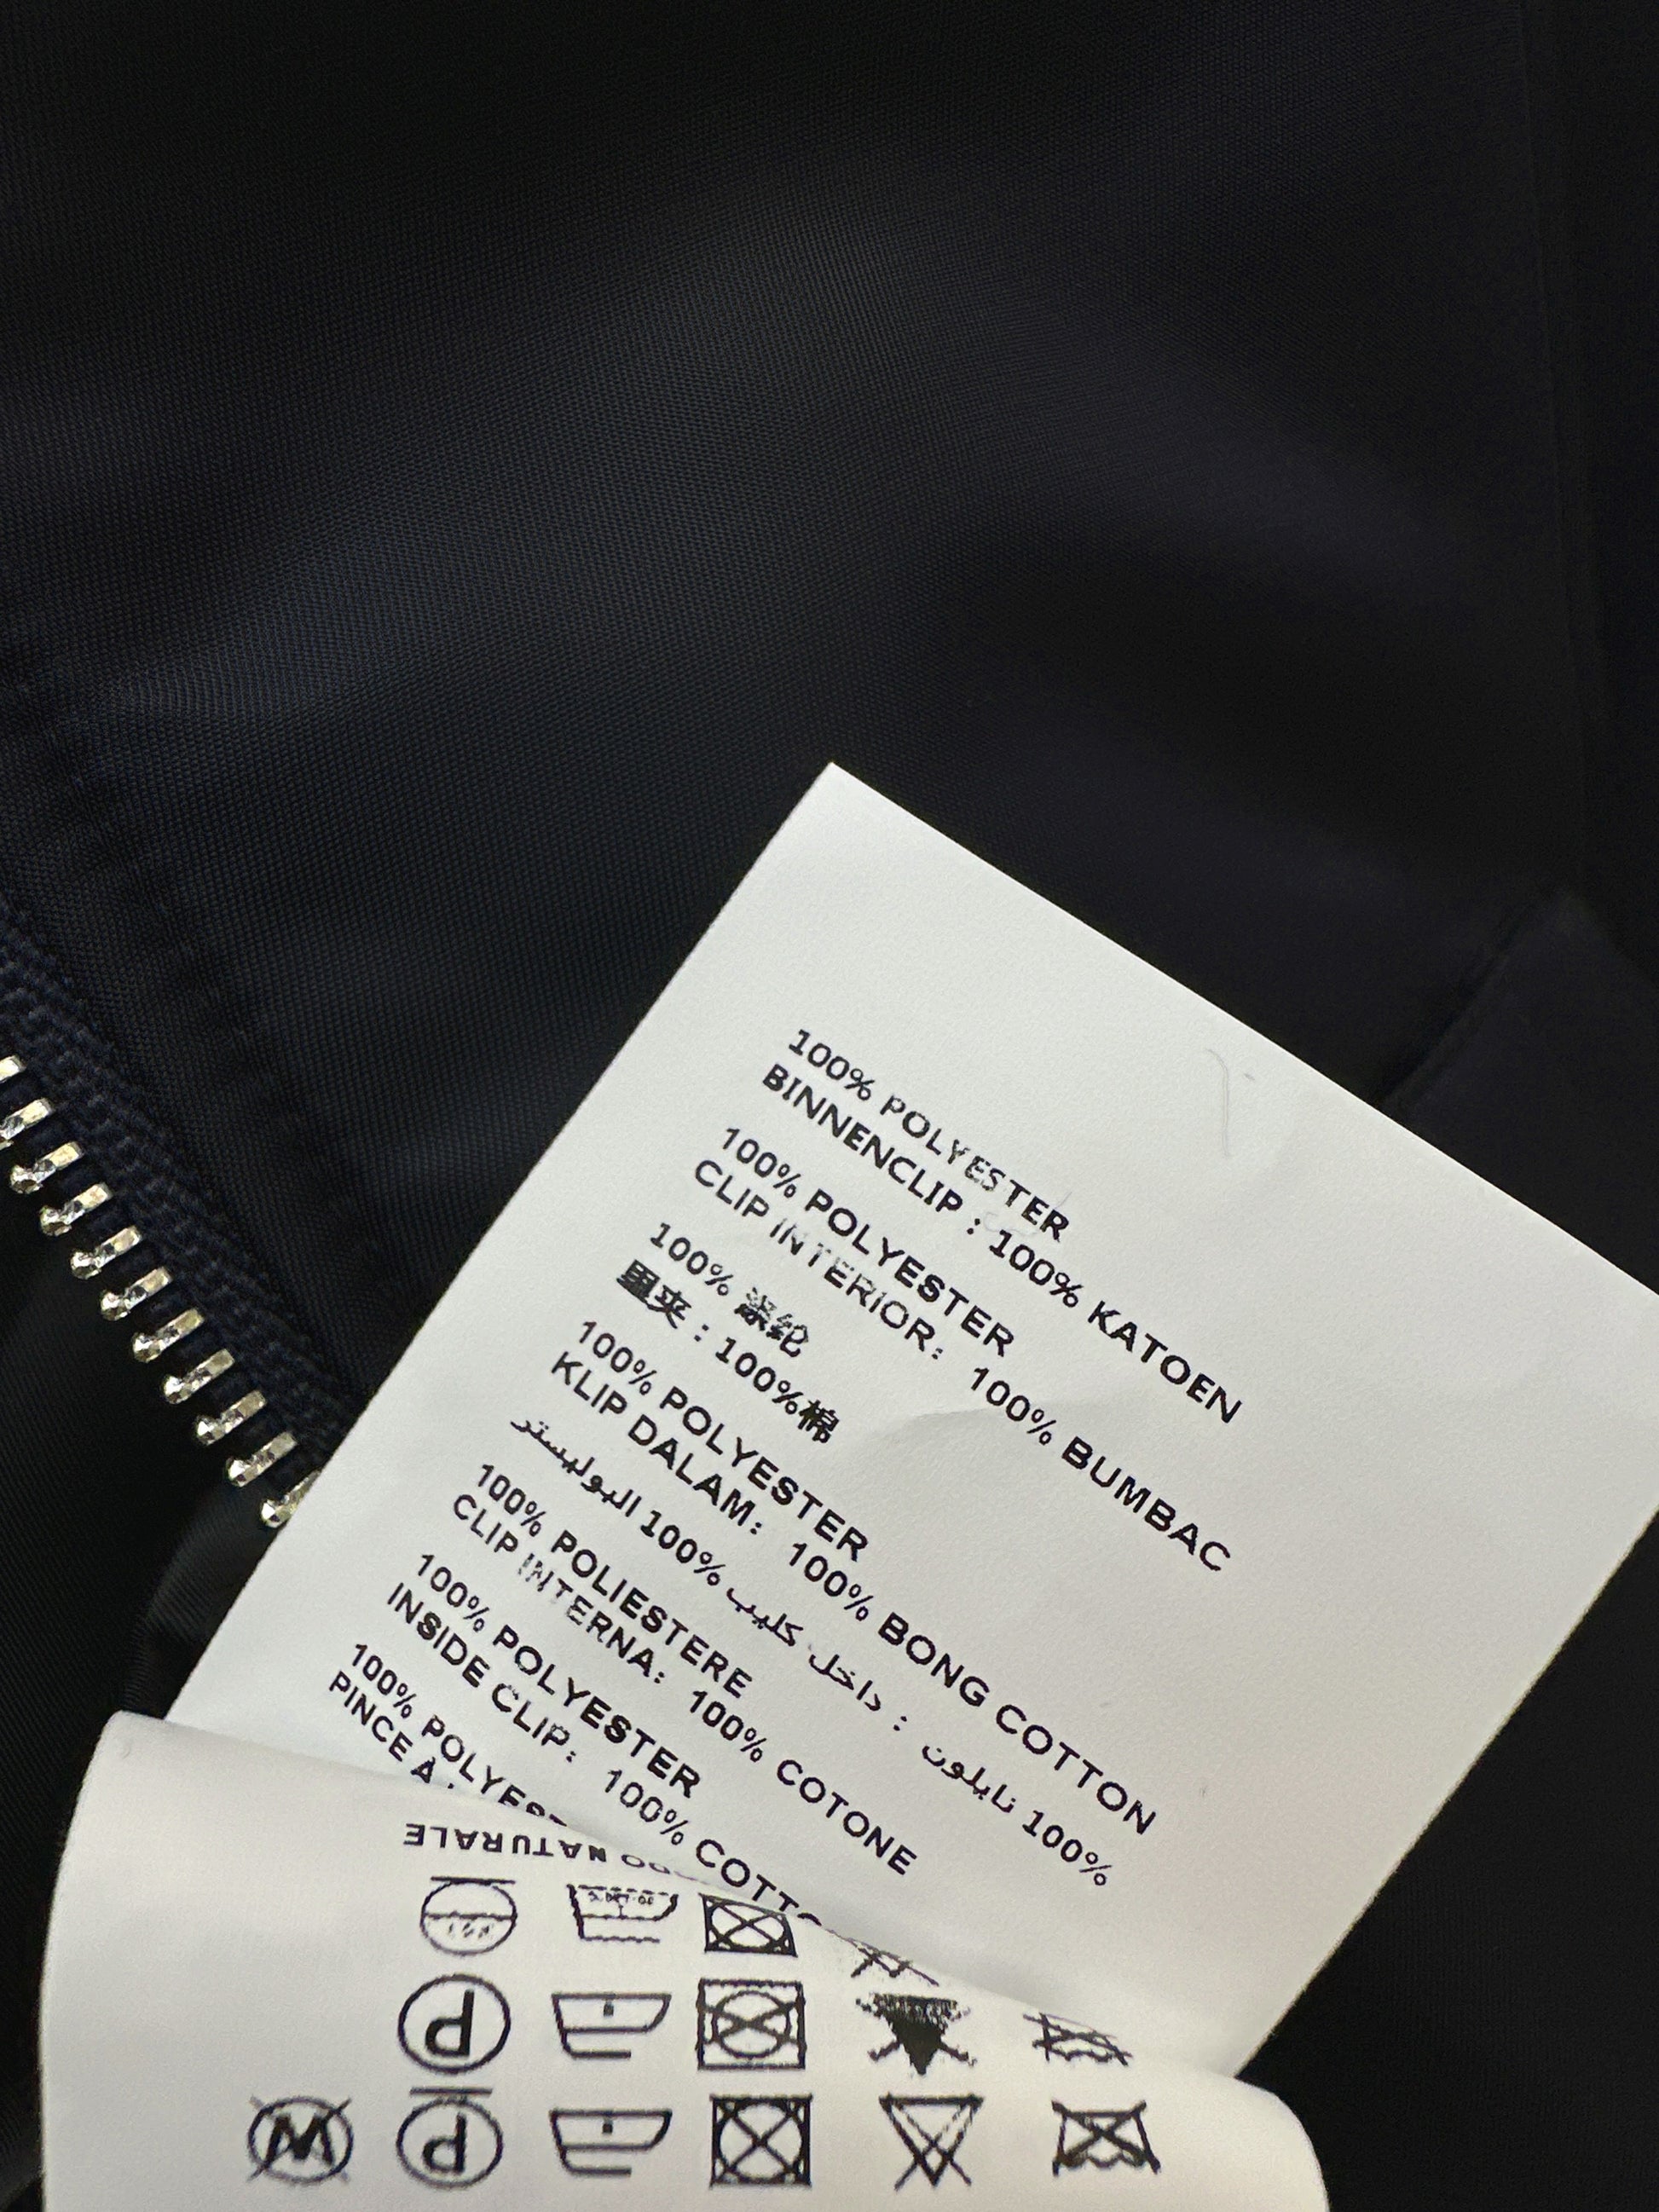 100% POLYESTER
BINNENCLIP : 100% KATOEN
100% POLYESTER
CLIP INTERIOR: 100% BUMBAC
100% 涤纶
里夹 : 100%棉
100% POLYESTER
KLIP DALAM: 100% BONG COTTON
100% نايلون : داخل كليب 100% البوليستر
100% POLIESTERE
CLIP INTERNA: 100% COTONE
100% POLYESTER
INSIDE CLIP: 100% COTT
100% POLYEST
PINCE À
NATURALE
P
P
W